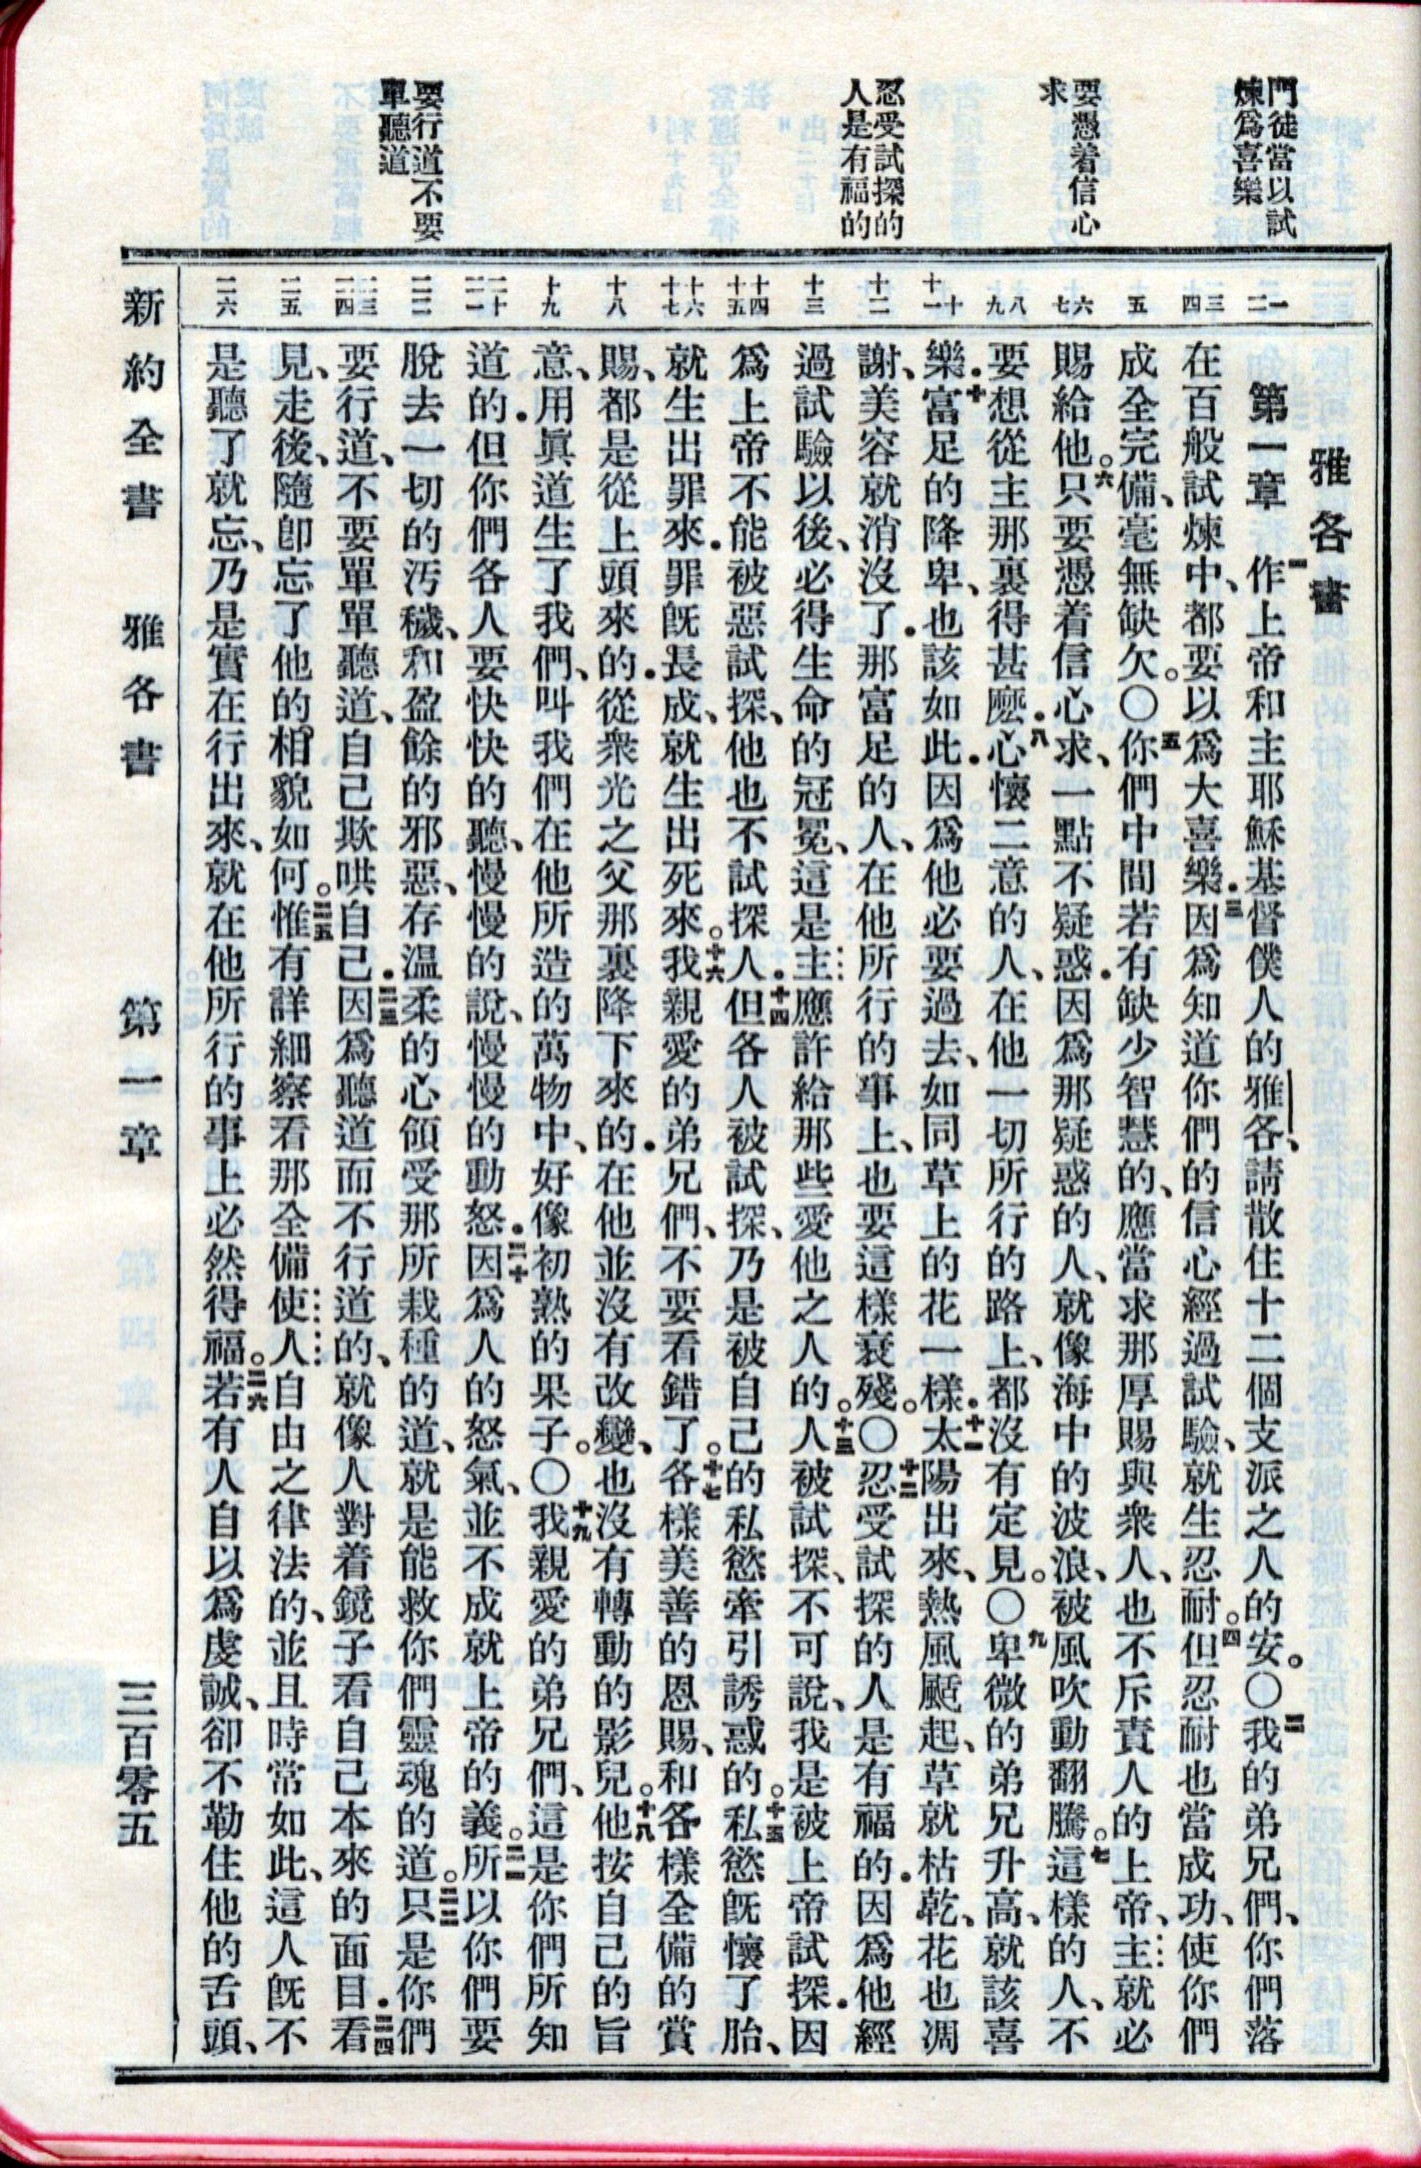 門徒當以試
煉爲喜樂
要憑着信心
求
忍受試探的
人是有福的
要行道不要
單聽道
雅各書
一
二
三
四
五
六
七
八
九
十
十一
十二
十三
十四
十五
十六
十七
十八
十九
二十
二一
二二
二三
二四
二五
二六
第一章 一作上帝和主耶穌基督僕人的雅各、請散住十二個支派之人的安。〇二我的弟兄們、你們落
在百般試煉中、都要以爲大喜樂．三因爲知道你們的信心經過試驗、就生忍耐。四但忍耐也當成功、使你們
成全完備、毫無缺欠。〇五你們中間若有缺少智慧的、應當求那厚賜與衆人、也不斥責人的上帝、主就必
賜給他。六只要憑着信心求、一點不疑惑．因爲那疑惑的人、就像海中的波浪、被風吹動翻騰。七這樣的人、不
要想從主那裏得甚麼．八心懷二意的人、在他一切所行的路上、都沒有定見。〇九卑微的弟兄升高、就該喜
樂．十富足的降卑、也該如此．因爲他必要過去、如同草上的花一樣．十一太陽出來、熱風颳起、草就枯乾、花也凋
謝、美容就消沒了．那富足的人、在他所行的事上、也要這樣衰殘。〇十二忍受試探的人是有福的．因爲他經
過試驗以後、必得生命的冠冕、這是主應許給那些愛他之人的。十三人被試探、不可說、我是被上帝試探．因
爲上帝不能被惡試探、他也不試探人．十四但各人被試探、乃是被自己的私慾牽引誘惑的。十五私慾旣懷了胎、
就生出罪來．罪旣長成、就生出死來。十六我親愛的弟兄們、不要看錯了。十七各樣美善的恩賜、和各樣全備的賞
賜、都是從上頭來的．從衆光之父那裏降下來的．在他並沒有改變、也沒有轉動的影兒。十八他按自己的旨
意、用眞道生了我們、叫我們在他所造的萬物中、好像初熟的果子。〇十九我親愛的弟兄們、這是你們所知
道的．但你們各人要快快的聽、慢慢的說、慢慢的動怒．二十因爲人的怒氣、並不成就上帝的義。二一所以你們要
脫去一切的汚穢、和盈餘的邪惡、存温柔的心領受那所栽種的道、就是能救你們靈魂的道。二二只是你們
要行道、不要單單聽道、自己欺哄自己．二三因爲聽道而不行道的、就像人對着鏡子看自己本來的面目．二四看
見、走後、隨卽忘了他的相貌如何。二五惟有詳細察看那全備使人自由之律法的、並且時常如此、這人旣不
是聽了就忘、乃是實在行出來、就在他所行的事上必然得福。二六若有人自以爲虔誠、卻不勒住他的舌頭、
新約全書 雅各書 第一章 三百零五